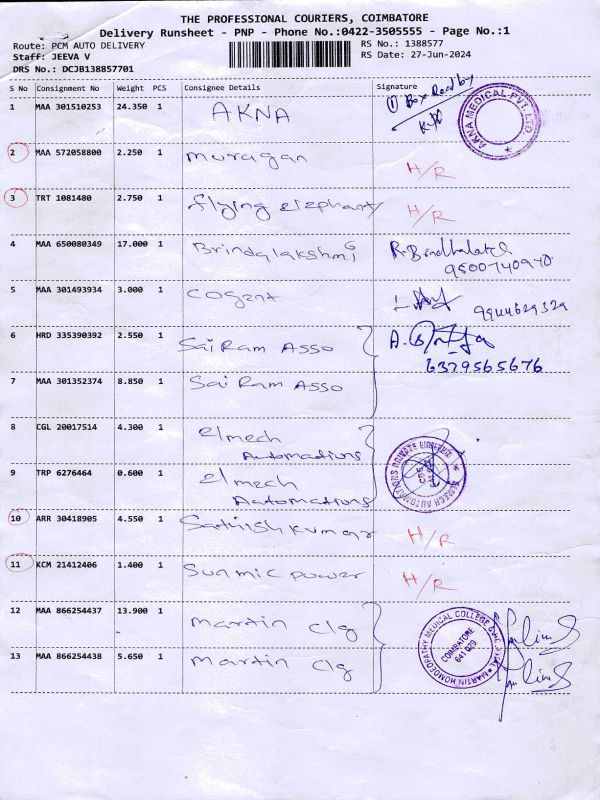 THE PROFESSIONAL COURIERS, COIMBATORE
Delivery Runsheet - PNP - Phone No.:0422-3505555 - Page No.:1
Route: PCM AUTO DELIVERY RS No.: 1388577
Staff: JEEVA V RS Date: 27-Jun-2024
DRS No.: DCJB138857701
S No Consignment No Weight PCS Consignee Details Signature
1 MAA 301510253 24.350 1 AKNA ① Box Recd by
AKNA MEDICAL PVT. LTD.
2 MAA 572058800 2.250 1 murugan H/R
3 TRT 1081480 2.750 1 flying elephant H/R
4 MAA 650080349 17.000 1 Brindalakshmi G
9500740970
5 MAA 301493934 3.000 1 cogent 9944629329
6 HRD 335390392 2.550 1 Sai Ram Asso A.
6379565676
7 MAA 301352374 8.850 1 Sai Ram Asso
8 CGL 20017514 4.300 1 elmech
Automations
ELMECH AUTOMATIONS PRIVATE LIMITED
9 TRP 6276464 0.600 1 elmech
Automations
10 ARR 30418905 4.550 1 Sathish kumar H/R
11 KCM 21412406 1.400 1 Sun mic power H/R
12 MAA 866254437 13.900 1 martin clg
MARTIN HOMOEOPATHY MEDICAL COLLEGE
COIMBATORE
641 029
13 MAA 866254438 5.650 1 martin clg